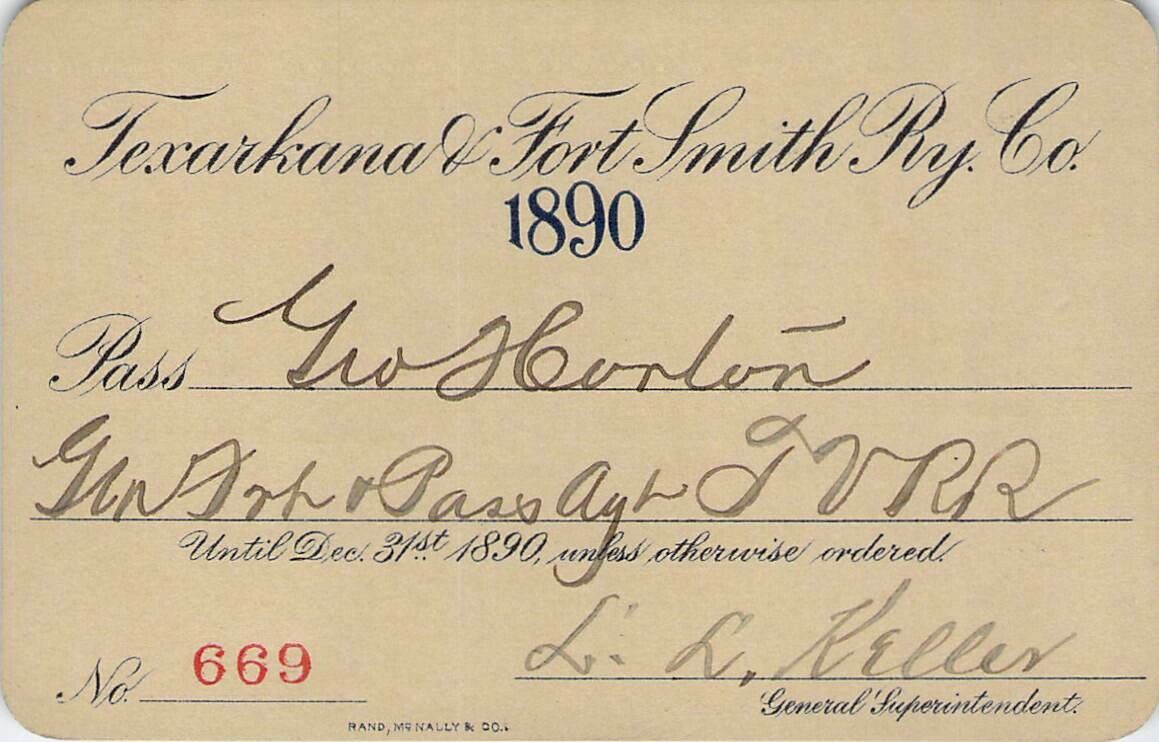 Texarkana & Fort Smith Ry. Co.
1890
Pass Geo Horton
Gen Frt & Pass Agt T V RR
Until Dec. 31st 1890, unless otherwise ordered.
L. L. Keller
No. 669
General Superintendent.
RAND, McNALLY & CO.